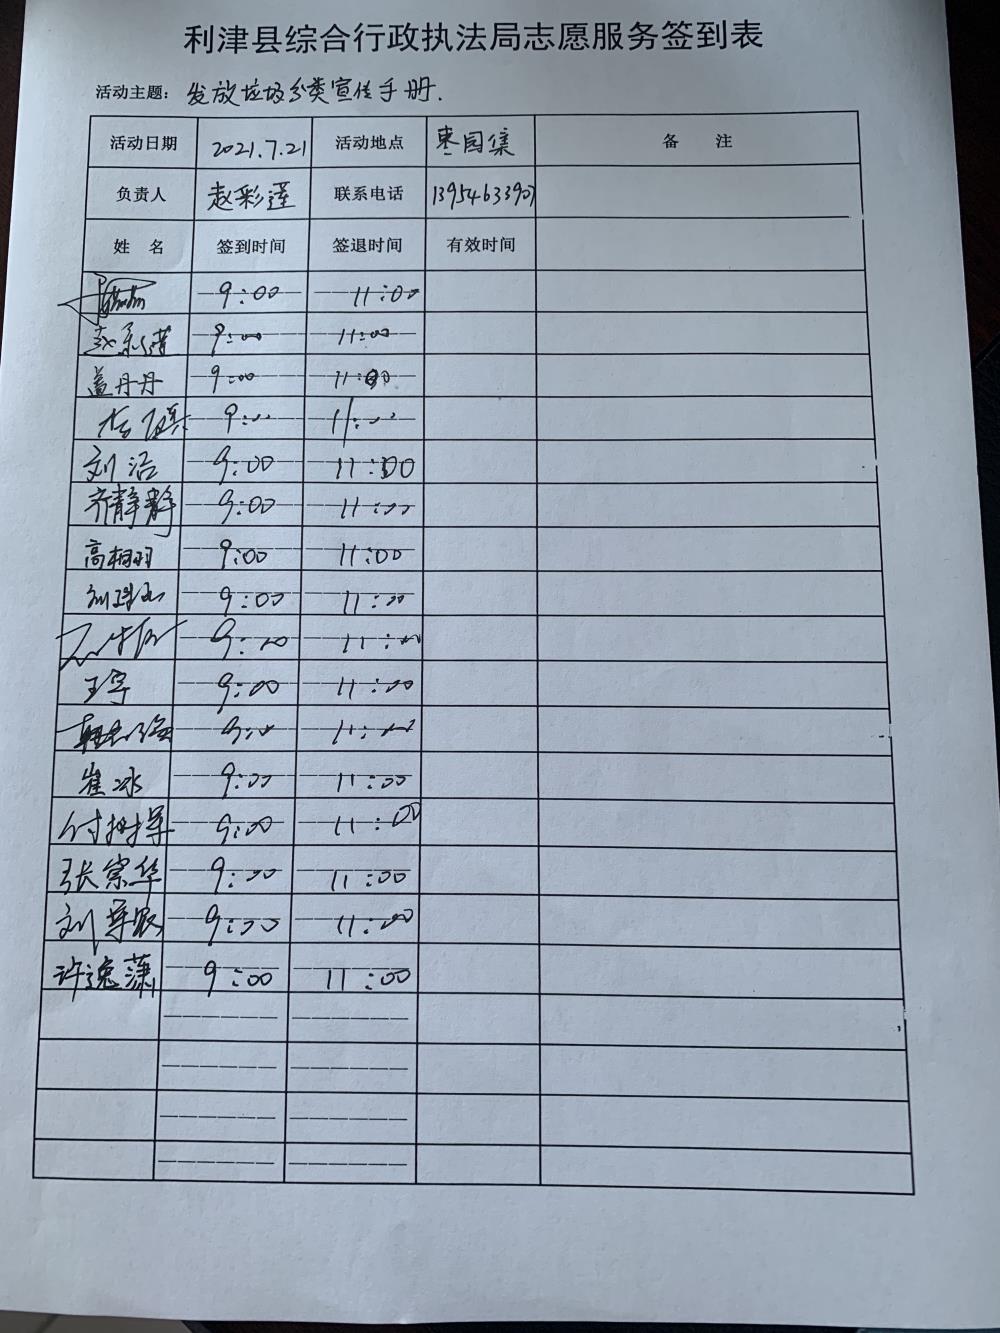 利津县综合行政执法局志愿服务签到表
活动主题: 发放垃圾分类宣传手册.
活动日期 2021.7.21 活动地点 枣园集 备 注
负责人 赵彩莲 联系电话 13954633907
姓 名 签到时间 签退时间 有效时间
9:00 11:00
赵彩莲 9:00 11:00
盖丹丹 9:00 11:00
9:00 11:00
刘洁 9:00 11:00
齐静静 9:00 11:00
高栩羽 9:00 11:00
9:00 11:00
9:00 11:00
王宇 9:00 11:00
9:00 11:00
崔冰 9:00 11:00
付树导 9:00 11:00
张宗华 9:00 11:00
9:00 11:00
许逸潇 9:00 11:00